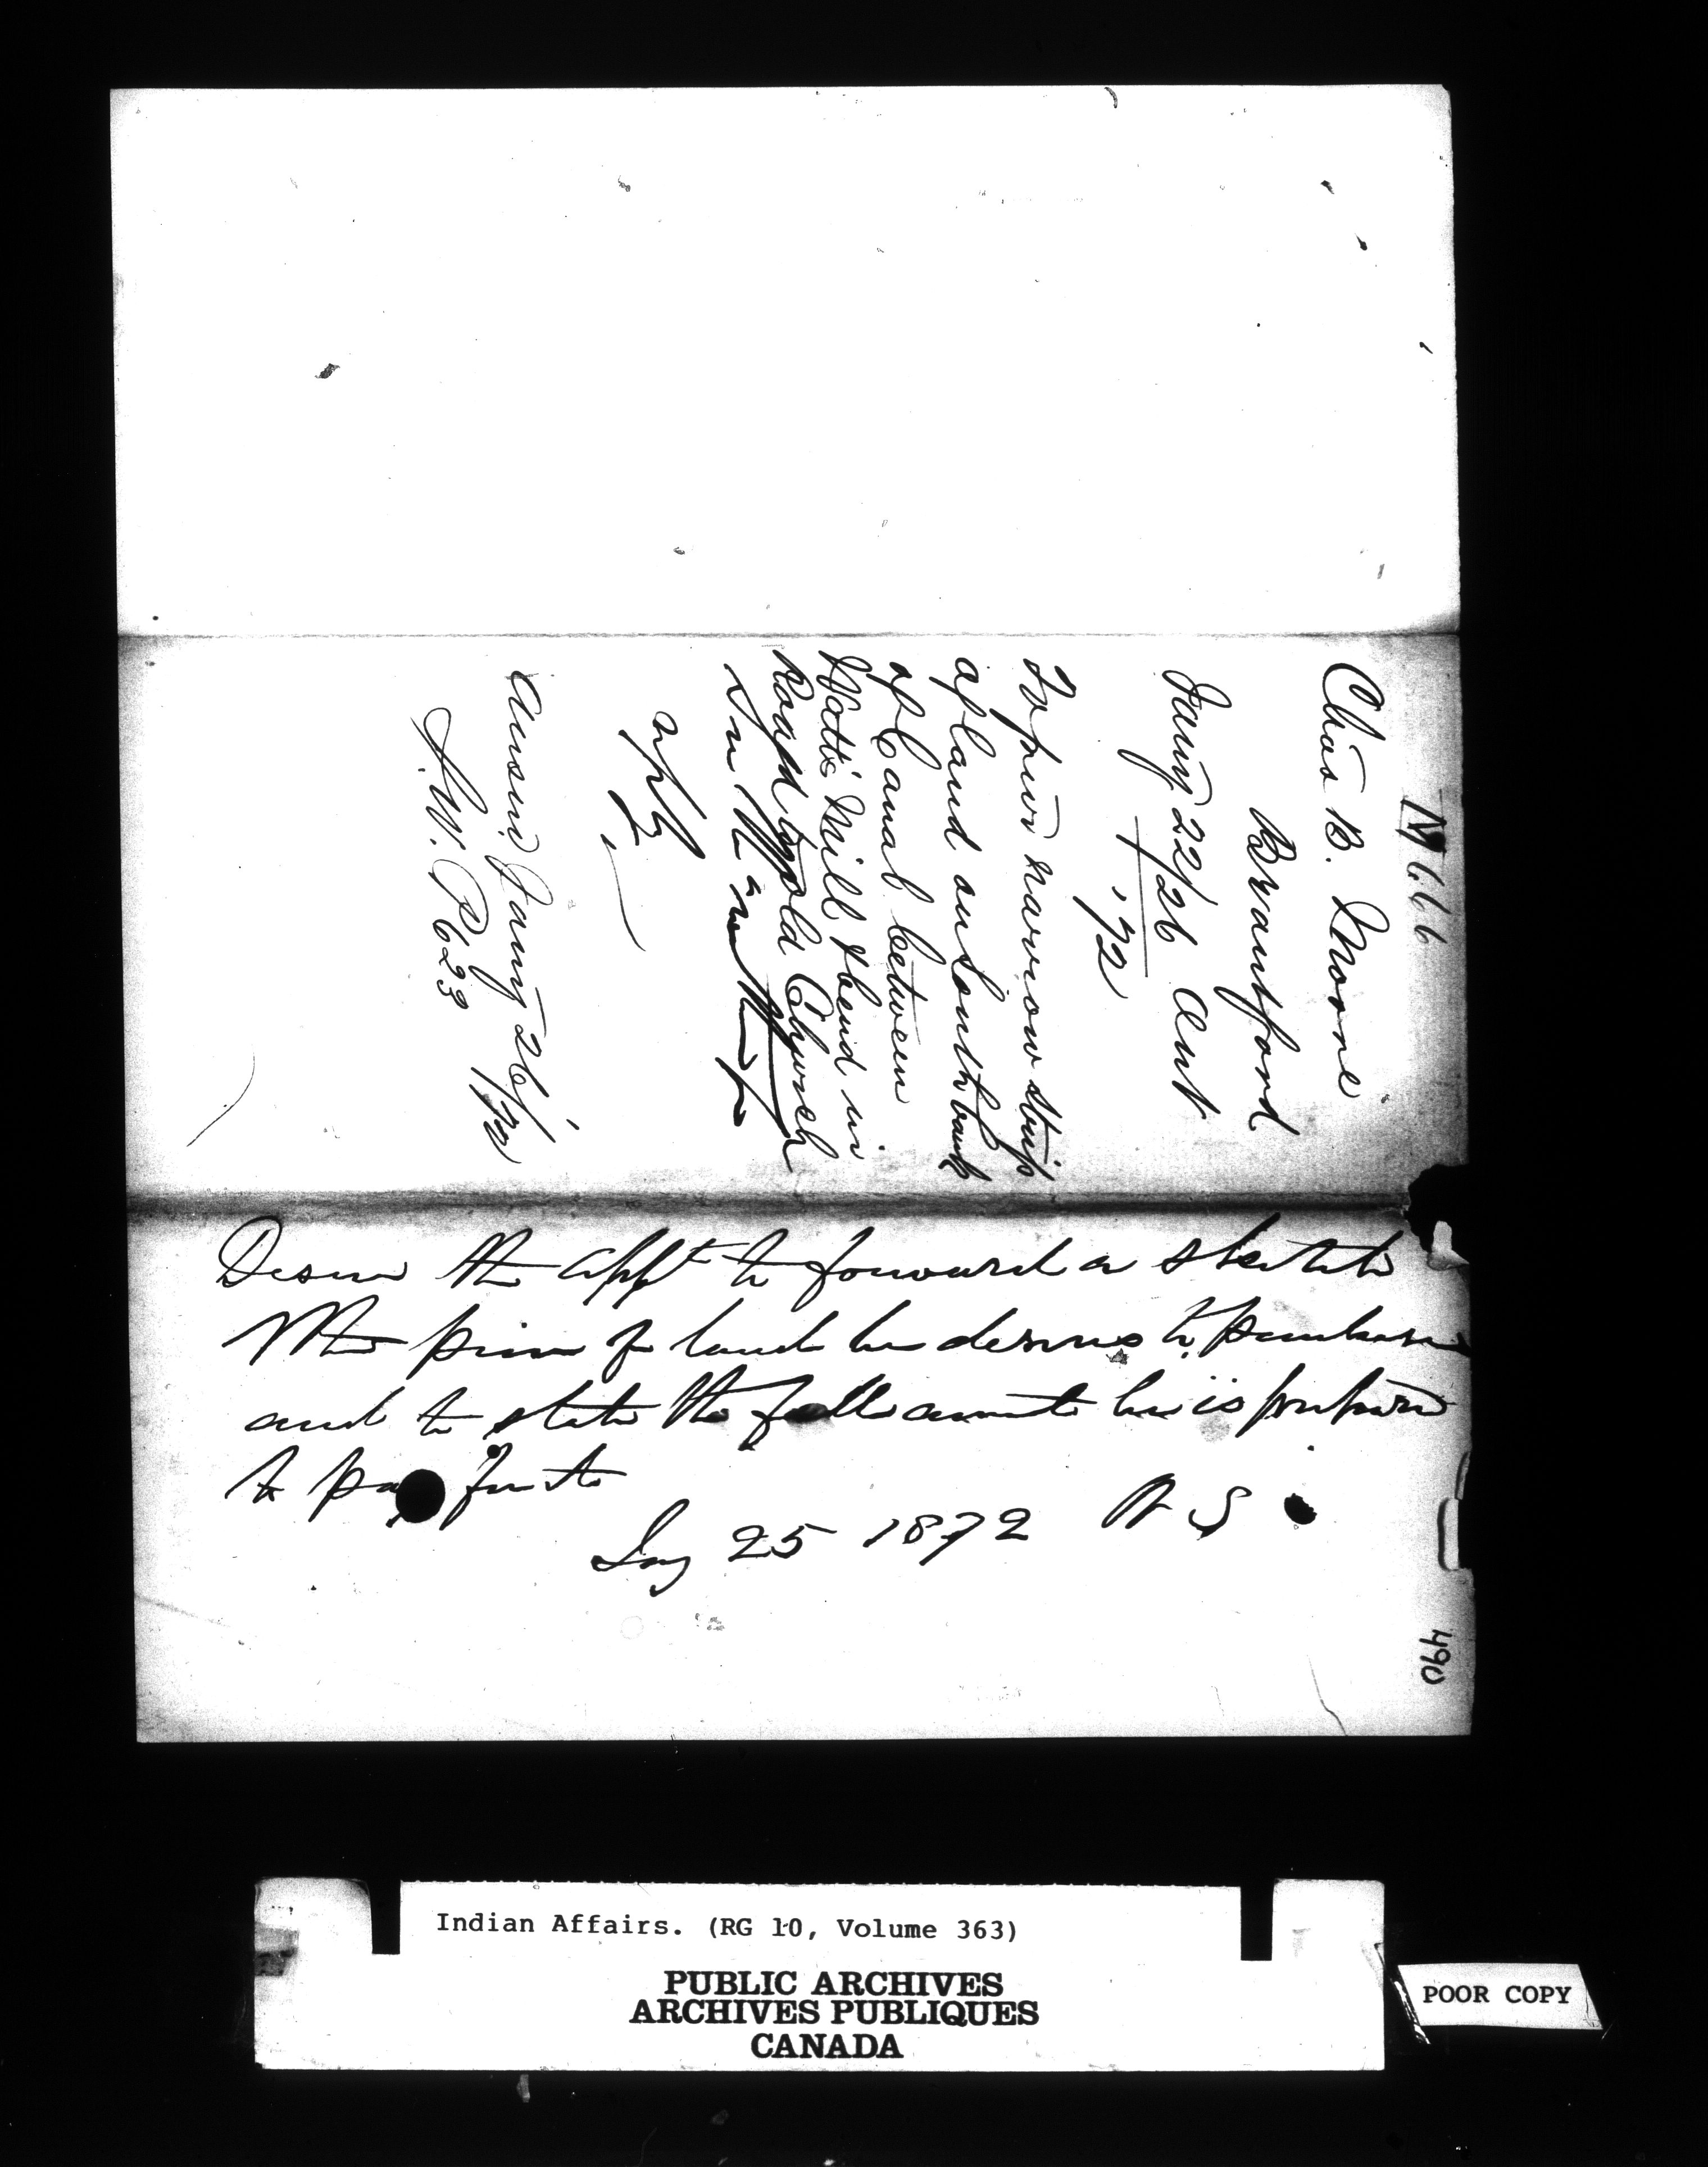 Nº 666
Chas B. Moore
Brantford
Jany 22/26 Ansd
'72
To purc narrow strip
of land on South bank
of Canal between
Watts' Mill & bend in
Road by old Church
Ansd Jany 26/72
L.W. P 623
Desire the appt to forward a sketch
of the piece of land he desires to purchase
and to state the full amount he is prepared
to pay for it
Jay 25 1872
490
Indian Affairs. (RG 10, Volume 363)
PUBLIC ARCHIVES
ARCHIVES PUBLIQUES
CANADA
POOR COPY